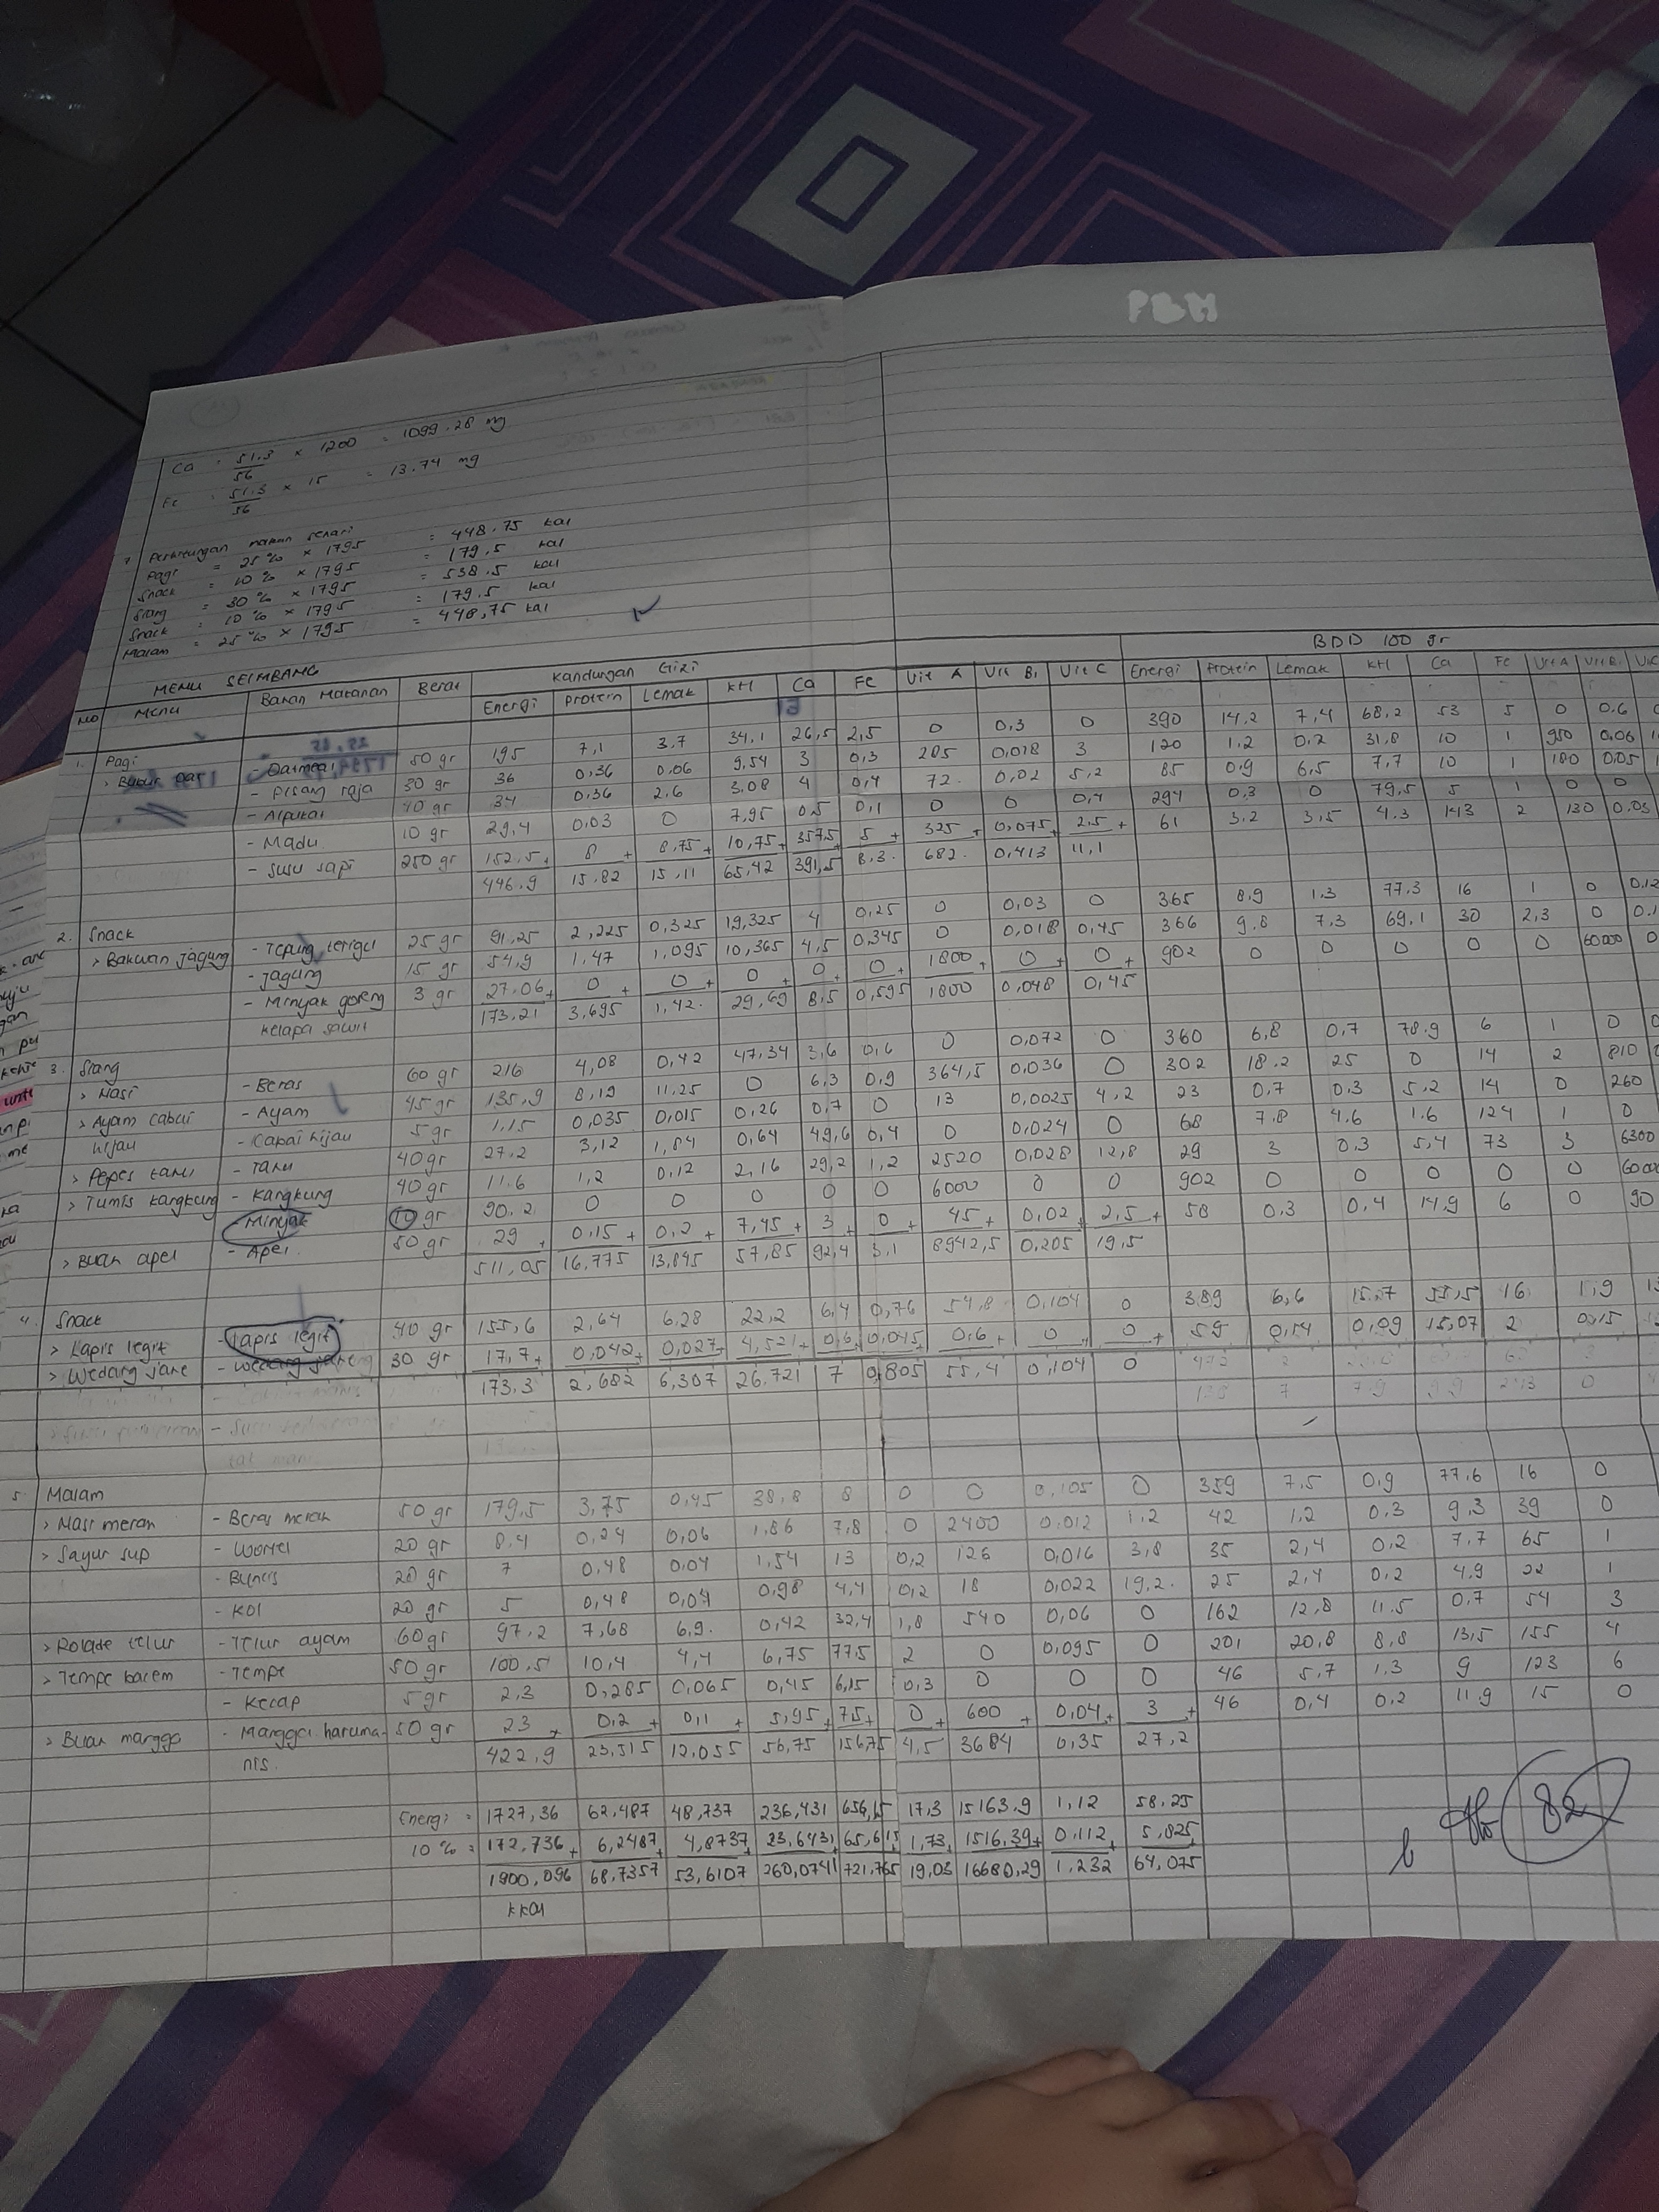 PBM
Ca = 51.3/56 × 1200 = 1099.28 mg
Fe = 51.3/56 × 15 = 13.74 mg
> Perhitungan makan sehari
Pagi = 25% × 1795 = 448.75 kal
Snack = 10% × 1795 = 179.5 kal
Siang = 30% × 1795 = 538.5 kal
Snack = 10% × 1795 = 179.5 kal
Malam = 25% × 1795 = 448,75 kal
MENU SEIMBANG
BDD 100 gr
Kandungan Gizi
No Menu Bahan Makanan Berat Energi Protein Lemak KH Ca Fe Vit A Vit B1 Vit C Energi Protein Lemak KH Ca Fe Vit A Vit B1 Vit C
1. Pagi
> Bubur Oat - Oatmeal 50 gr 195 7,1 3,7 34.1 26,5 2,5 0 0,3 0 390 14,2 7,4 68,2 53 5 0 0.6
- Pisang raja 30 gr 36 0,36 0,06 9,54 3 0,3 285 0,018 3 120 1.2 0.2 31,8 10 1 950 0,06
- Alpukat 40 gr 34 0,36 2,6 3,08 4 0,4 72 0,02 5,2 85 0,9 6,5 7,7 10 1 180 0,05
- Madu 10 gr 29,4 0,03 0 7,95 0,5 0,1 0 0 0,4 294 0,3 0 79,5 5 1 0 0
- Susu sapi 250 gr 152,5 8 8,75 10,75 357,5 5 325 0,075 2,5 + 61 3,2 3,5 4.3 143 2 130 0,03
446,9 15,82 15,11 65,42 391,5 8,3 682 0,413 11,1
2. Snack
> Bakwan jagung - Tepung terigu 25 gr 91,25 2,225 0,325 19,325 4 0,25 0 0,03 0 365 8,9 1.3 77.3 16 1 0 0.12
- Jagung 15 gr 54,9 1,47 1,095 10,365 4,5 0,345 0 0,018 0,45 366 9,8 7,3 69.1 30 2,3 0
- Minyak goreng 3 gr 27.06 0 0 0 0 0 1800 0 0 + 902 0 0 0 0 0 60000
kelapa sawit 173,21 3,695 1,42 29,69 8,5 0,595 1800 0,048 0,45
3. Siang
> Nasi - Beras 60 gr 216 4,08 0,42 47,34 3,6 0,6 0 0,072 0 360 6,8 0,7 78.9 6 1 0
> Ayam cabai - Ayam 45 gr 135,9 8,19 11,25 0 6,3 0,9 364,5 0,036 0 302 18.2 25 0 14 2 810
hijau - Cabai hijau 5 gr 1,15 0,035 0,015 0,26 0,7 0 13 0,0025 4,2 23 0,7 0.3 5,2 14 0 260
> Pepes tahu - Tahu 40 gr 27.2 3,12 1,84 0,64 49,6 0,4 0 0,024 0 68 7,8 4.6 1.6 124 1 0
> Tumis kangkung - Kangkung 40 gr 11.6 1,2 0,12 2,16 29,2 1,2 2520 0,028 12,8 29 3 0.3 5,4 73 3 6300
- Minyak 10 gr 90,2 0 0 0 0 0 6000 0 0 902 0 0 0 0 0
> Buah apel - Apel 50 gr 29 0,15 0,2 7,45 3 0 45 0,02 2,5 + 58 0.3 0,4 14,9 6 0 90
511,05 16,775 13,845 57,85 92,4 3,1 8942,5 0,205 19,5
4. Snack
> Lapis legit - Lapis legit 40 gr 155,6 2,64 6,28 22,2 6,4 0,76 54,8 0,104 0 389 6,6 15.7 55,5 16 1,9
> Wedang jahe - Wedang jahe 30 gr 17,7 0,042 0,027 4,521 0,6 0,045 0,6 0 0 + 59 0,14 0,09 15,07 2 0,15
173,3 2,682 6,307 26.721 7 0,805 55,4 0,104 0
5. Malam
> Nasi merah - Beras merah 50 gr 179,5 3,75 0,45 38,8 8 0 0 0,105 0 359 7,5 0,9 77.6 16 0
> Sayur sup - Wortel 20 gr 8,4 0,24 0,06 1,86 7,8 0 2400 0.012 1,2 42 1,2 0.3 9,3 39 0
- Buncis 20 gr 7 0,48 0,04 1,54 13 0,2 126 0,016 3,8 35 2,4 0,2 7,7 65 1
- Kol 20 gr 5 0,48 0,04 0,98 4,4 0,2 18 0,022 19,2 25 2,4 0,2 4.9 22 1
> Rolade telur - Telur ayam 60 gr 97.2 7,68 6,9 0,42 32,4 1,8 540 0,06 0 162 12,8 11.5 0,7 54 3
> Tempe bacem - Tempe 50 gr 100,5 10,4 4,4 6,75 77,5 2 0 0,095 0 201 20,8 8,8 13,5 155 4
- Kecap 5 gr 2,3 0,285 0,065 0,45 6,15 0,3 0 0 0 46 5,7 1.3 9 123 6
> Buah mangga - Mangga haruma- 50 gr 23 0,2 0,1 5,95 7,5 0 600 0,04 3 + 46 0,4 0,2 11.9 15 0
nis. 422,9 23,515 12,055 56,75 156,75 4,5 3684 0,35 27,2
Energi = 1727,36 62,487 48,737 236,431 656,15 17,3 15163,9 1,12 58.25
10% = 172,736 6,2487 4,8737 23,6431 65,615 1,73 1516,39 0,112 5,825
1900,096 68,7357 53,6107 260,0741 721,765 19,03 16680,29 1,232 64,075
kkal
82